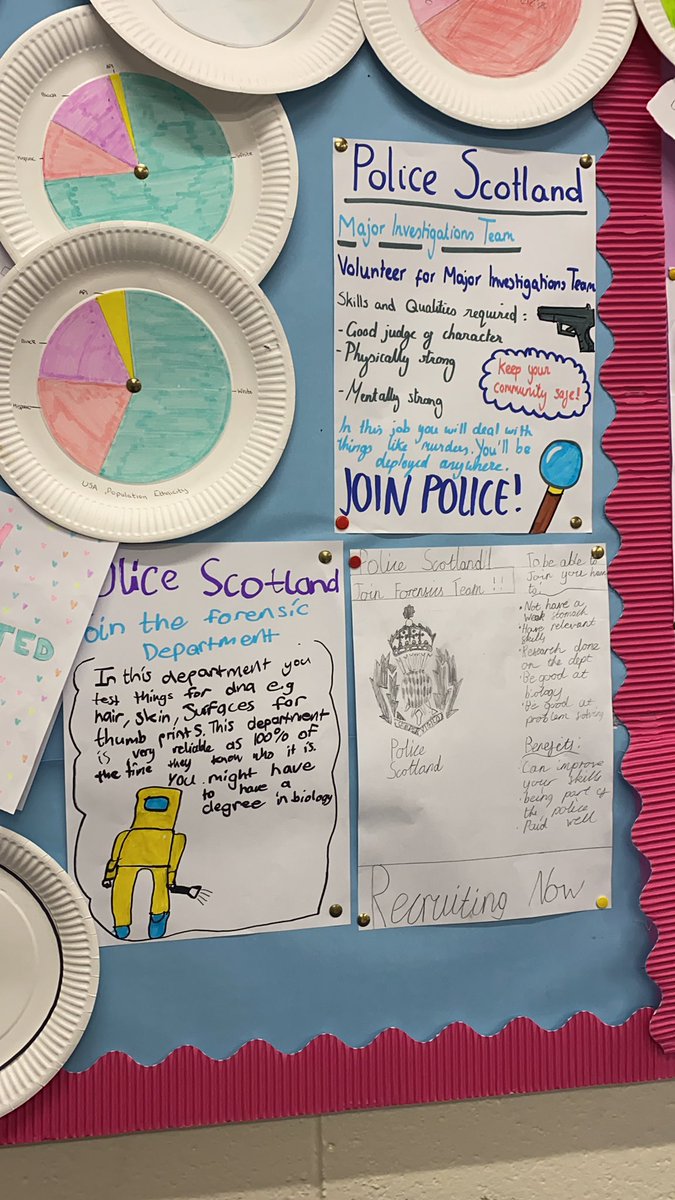 API
Black
White
Hispanic
API
Black
White
Hispanic
USA Population Ethnicity
TED
Police Scotland
Major Investigations Team
Volunteer for Major Investigations Team
Skills and Qualities required :
-Good judge of character
-Physically strong
-Mentally strong
Keep your
community safe!
In this job you will deal with
things like murders. You'll be
deployed anywhere.
JOIN POLICE!
olice Scotland
oin the forensic
Department
In this department you
test things for dna e.g
hair, skin, Surfaces for
thumb prints. This department
is very reliable as 100% of
the time they know who it is.
You might have
to have a
degree in biology
Police Scotland!
Join Forensics Team !!
Police
Scotland
To be able to
Join you have
to
• Not have a
weak stomach
• Have relevant
skills
• Research done
on the dept
• Be good at
biology
• Be good at
problem solving
Benefits:
• Can improve
your skills
• being part of
the police
• Paid well
Recruiting Now